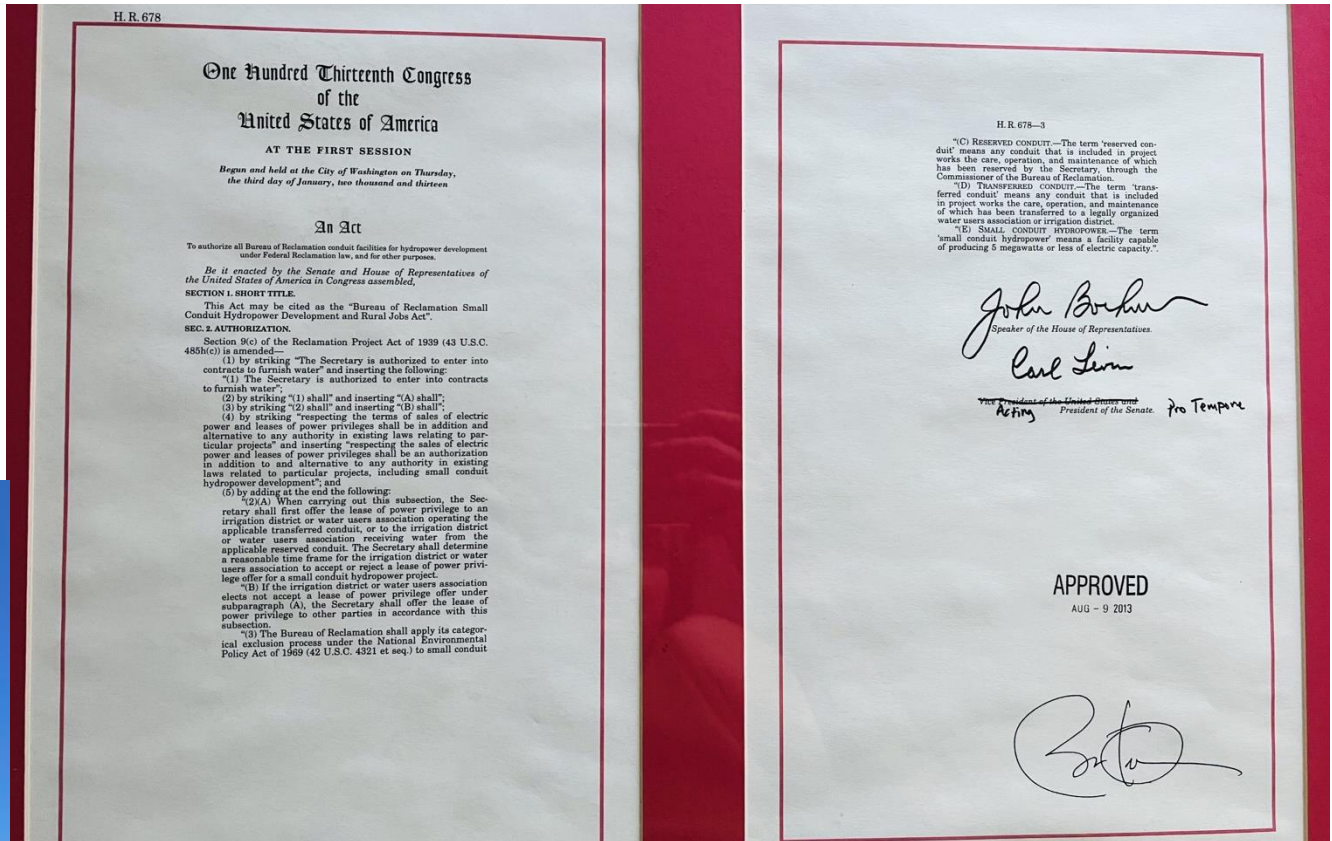 H. R. 678
One Hundred Thirteenth Congress
of the
United States of America
AT THE FIRST SESSION
Begun and held at the City of Washington on Thursday,
the third day of January, two thousand and thirteen
An Act
To authorize all Bureau of Reclamation conduit facilities for hydropower development
under Federal Reclamation law, and for other purposes.
Be it enacted by the Senate and House of Representatives of
the United States of America in Congress assembled,
SECTION 1. SHORT TITLE.
This Act may be cited as the “Bureau of Reclamation Small
Conduit Hydropower Development and Rural Jobs Act”.
SEC. 2. AUTHORIZATION.
Section 9(c) of the Reclamation Project Act of 1939 (43 U.S.C.
485h(c)) is amended—
(1) by striking “The Secretary is authorized to enter into
contracts to furnish water” and inserting the following:
“(1) The Secretary is authorized to enter into contracts
to furnish water”;
(2) by striking “(1) shall” and inserting “(A) shall”;
(3) by striking “(2) shall” and inserting “(B) shall”;
(4) by striking “respecting the terms of sales of electric
power and leases of power privileges shall be in addition and
alternative to any authority in existing laws relating to par-
ticular projects” and inserting “respecting the sales of electric
power and leases of power privileges shall be an authorization
in addition to and alternative to any authority in existing
laws related to particular projects, including small conduit
hydropower development”; and
(5) by adding at the end the following:
“(2)(A) When carrying out this subsection, the Sec-
retary shall first offer the lease of power privilege to an
irrigation district or water users association operating the
applicable transferred conduit, or to the irrigation district
or water users association receiving water from the
applicable reserved conduit. The Secretary shall determine
a reasonable time frame for the irrigation district or water
users association to accept or reject a lease of power privi-
lege offer for a small conduit hydropower project.
“(B) If the irrigation district or water users association
elects not accept a lease of power privilege offer under
subparagraph (A), the Secretary shall offer the lease of
power privilege to other parties in accordance with this
subsection.
“(3) The Bureau of Reclamation shall apply its categor-
ical exclusion process under the National Environmental
Policy Act of 1969 (42 U.S.C. 4321 et seq.) to small conduit
H. R. 678—3
“(C) RESERVED CONDUIT.—The term ‘reserved con-
duit’ means any conduit that is included in project
works the care, operation, and maintenance of which
has been reserved by the Secretary, through the
Commissioner of the Bureau of Reclamation.
“(D) TRANSFERRED CONDUIT.—The term ‘trans-
ferred conduit’ means any conduit that is included
in project works the care, operation, and maintenance
of which has been transferred to a legally organized
water users association or irrigation district.
“(E) SMALL CONDUIT HYDROPOWER.—The term
‘small conduit hydropower’ means a facility capable
of producing 5 megawatts or less of electric capacity.”.
John Boehner
Speaker of the House of Representatives.
Carl Levin
Vice President of the United States and
Acting President of the Senate. Pro Tempore
APPROVED
AUG - 9 2013